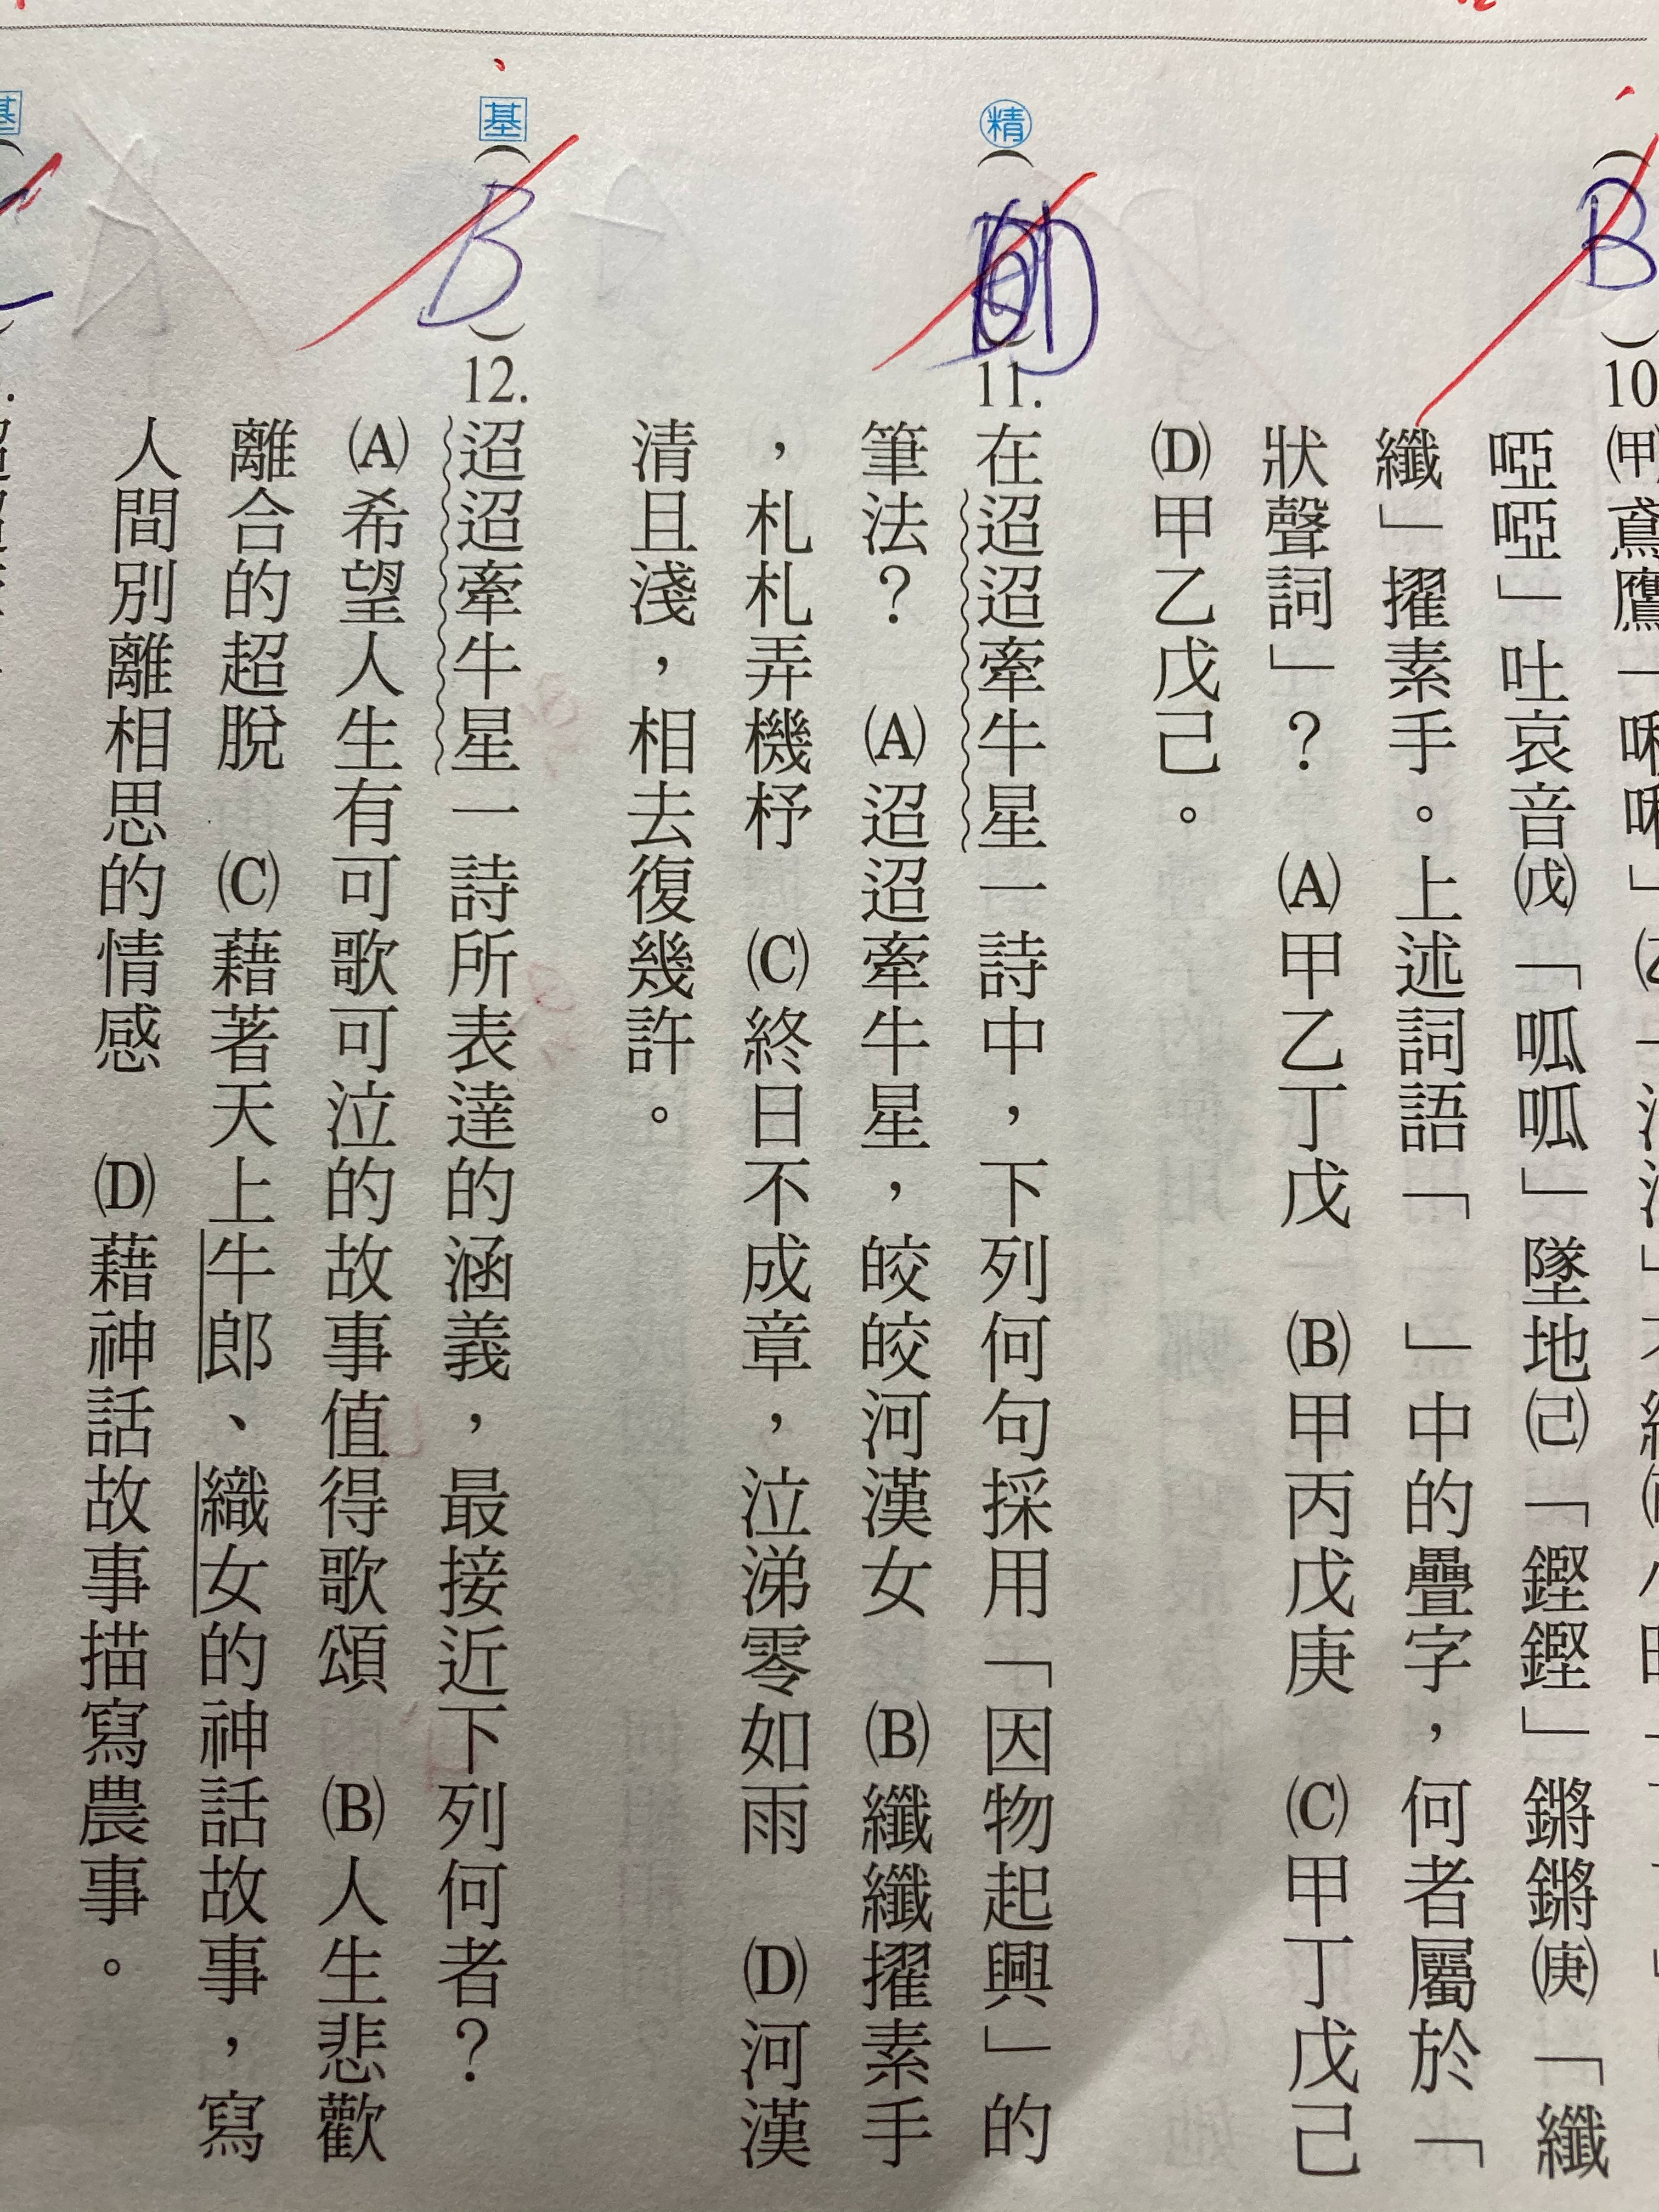 (B)10 (甲)鳶鷹
啞啞」吐哀音(戊)「呱呱」墜地(己)「鏗鏗」鏘鏘(庚)「纖
纖」擢素手。上述詞語「　」中的疊字，何者屬於「
狀聲詞」？　(A)甲乙丁戊　(B)甲丙戊庚　(C)甲丁戊己
(D)甲乙戊己。
精( D )11.在迢迢牽牛星一詩中，下列何句採用「因物起興」的
筆法？　(A)迢迢牽牛星，皎皎河漢女　(B)纖纖擢素手
，札札弄機杼　(C)終日不成章，泣涕零如雨　(D)河漢
清且淺，相去復幾許。
基( B )12.迢迢牽牛星一詩所表達的涵義，最接近下列何者？
(A)希望人生有可歌可泣的故事值得歌頌　(B)人生悲歡
離合的超脫　(C)藉著天上牛郎、織女的神話故事，寫
人間別離相思的情感　(D)藉神話故事描寫農事。
基